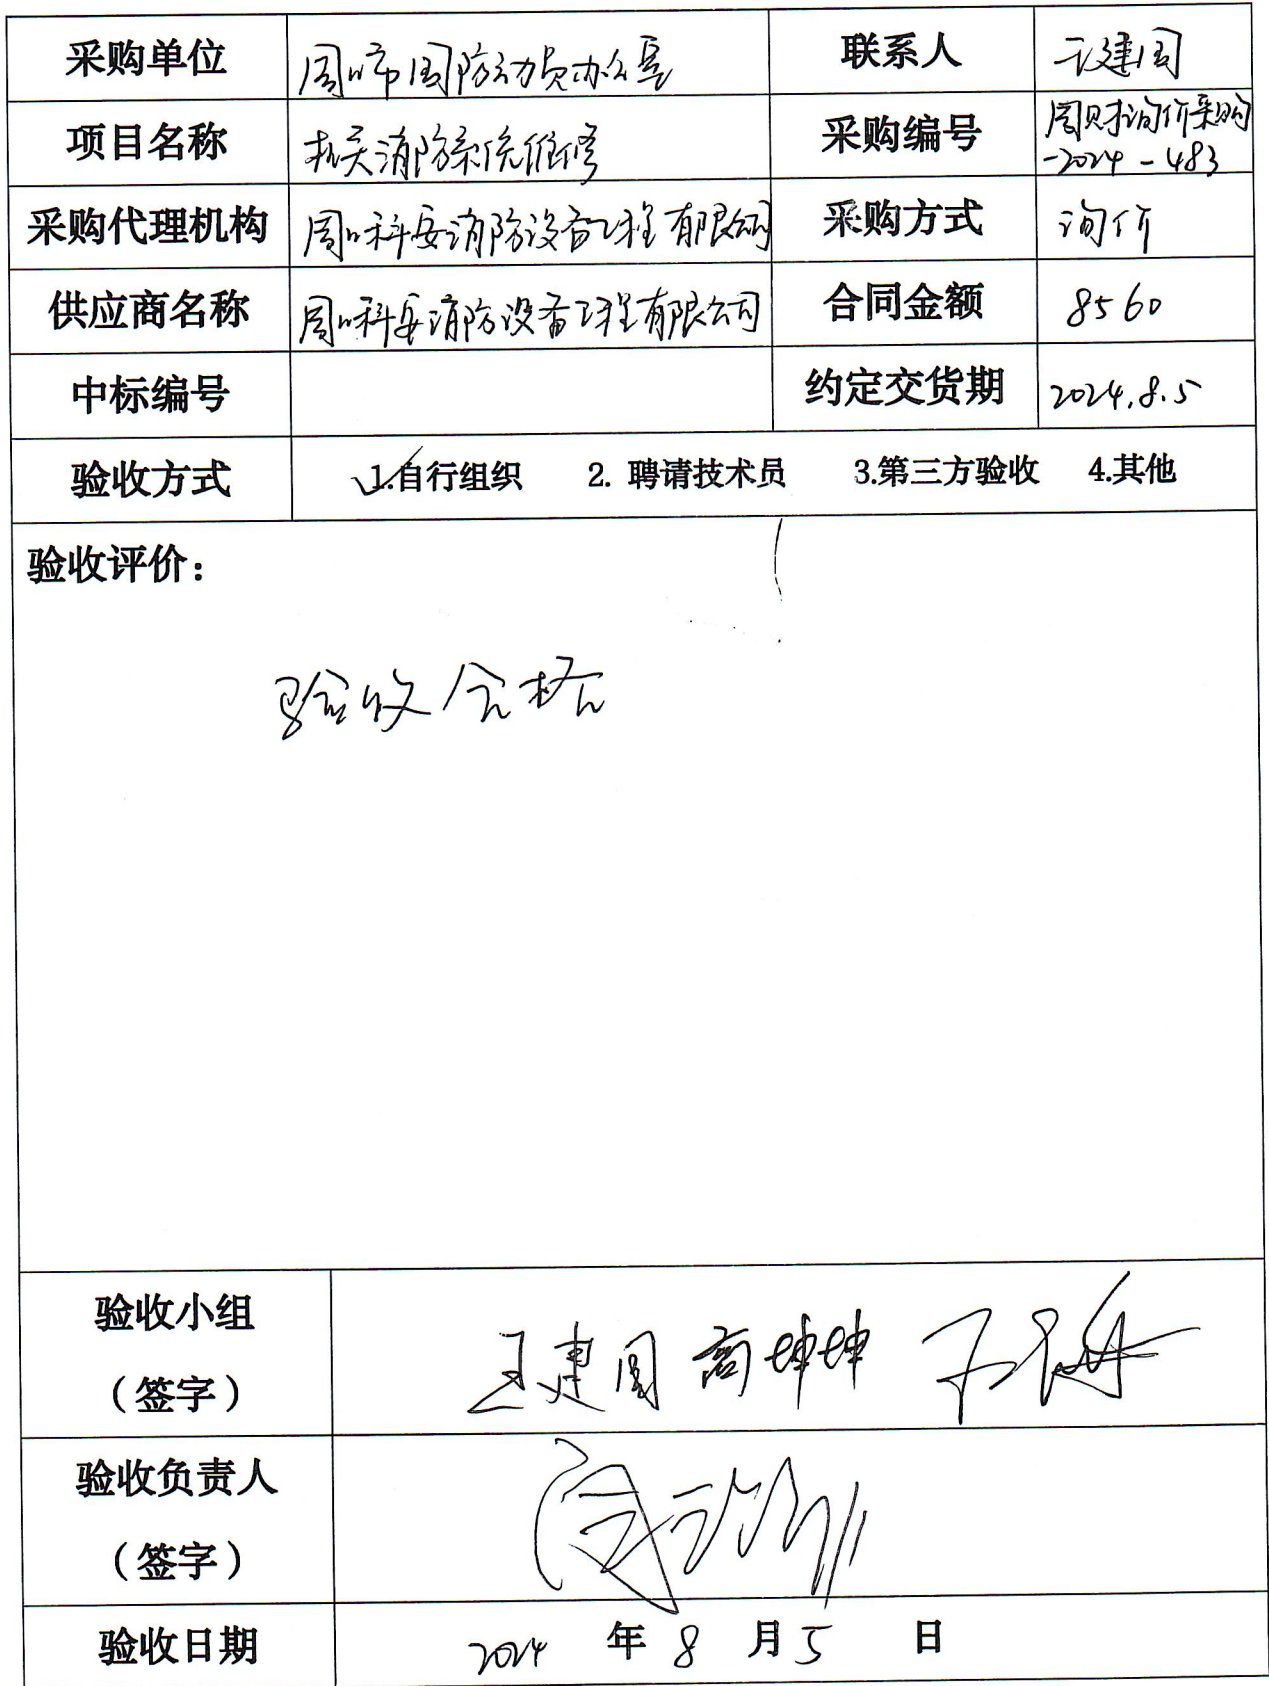 采购单位 周口市国防动员办公室 联系人 王建国
项目名称 机关消防系统维修 采购编号 周财询价采购
-2024-483
采购代理机构 周口科安消防设备工程有限公司 采购方式 询价
供应商名称 周口科安消防设备工程有限公司 合同金额 8560
中标编号 约定交货期 2024.8.5
验收方式 1.自行组织 2. 聘请技术员 3.第三方验收 4.其他
验收评价：
验收合格
验收小组
（签字） 王建国 商坤坤
验收负责人
（签字）
验收日期 2024 年 8 月 5 日